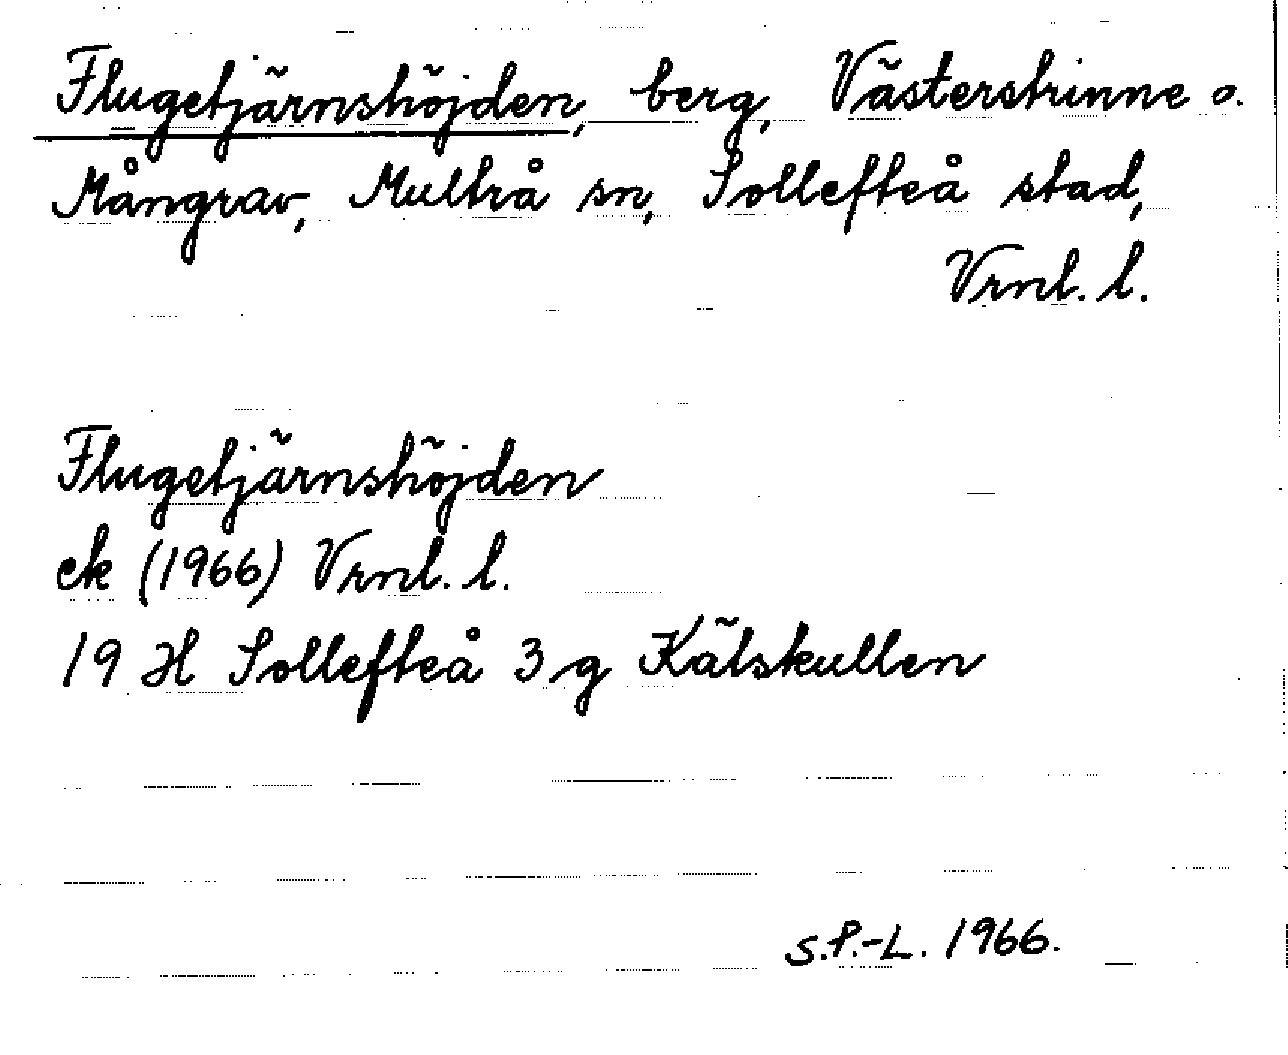 Flugetjärnshöjden, berg, Västerstrinne o.
Mångrav, Multrå sn, Sollefteå stad,
Vrnl. l.
Flugetjärnshöjden
ek (1966) Vrnl. l.
19 H Sollefteå 3 g Kälskullen
S.P.-L. 1966.